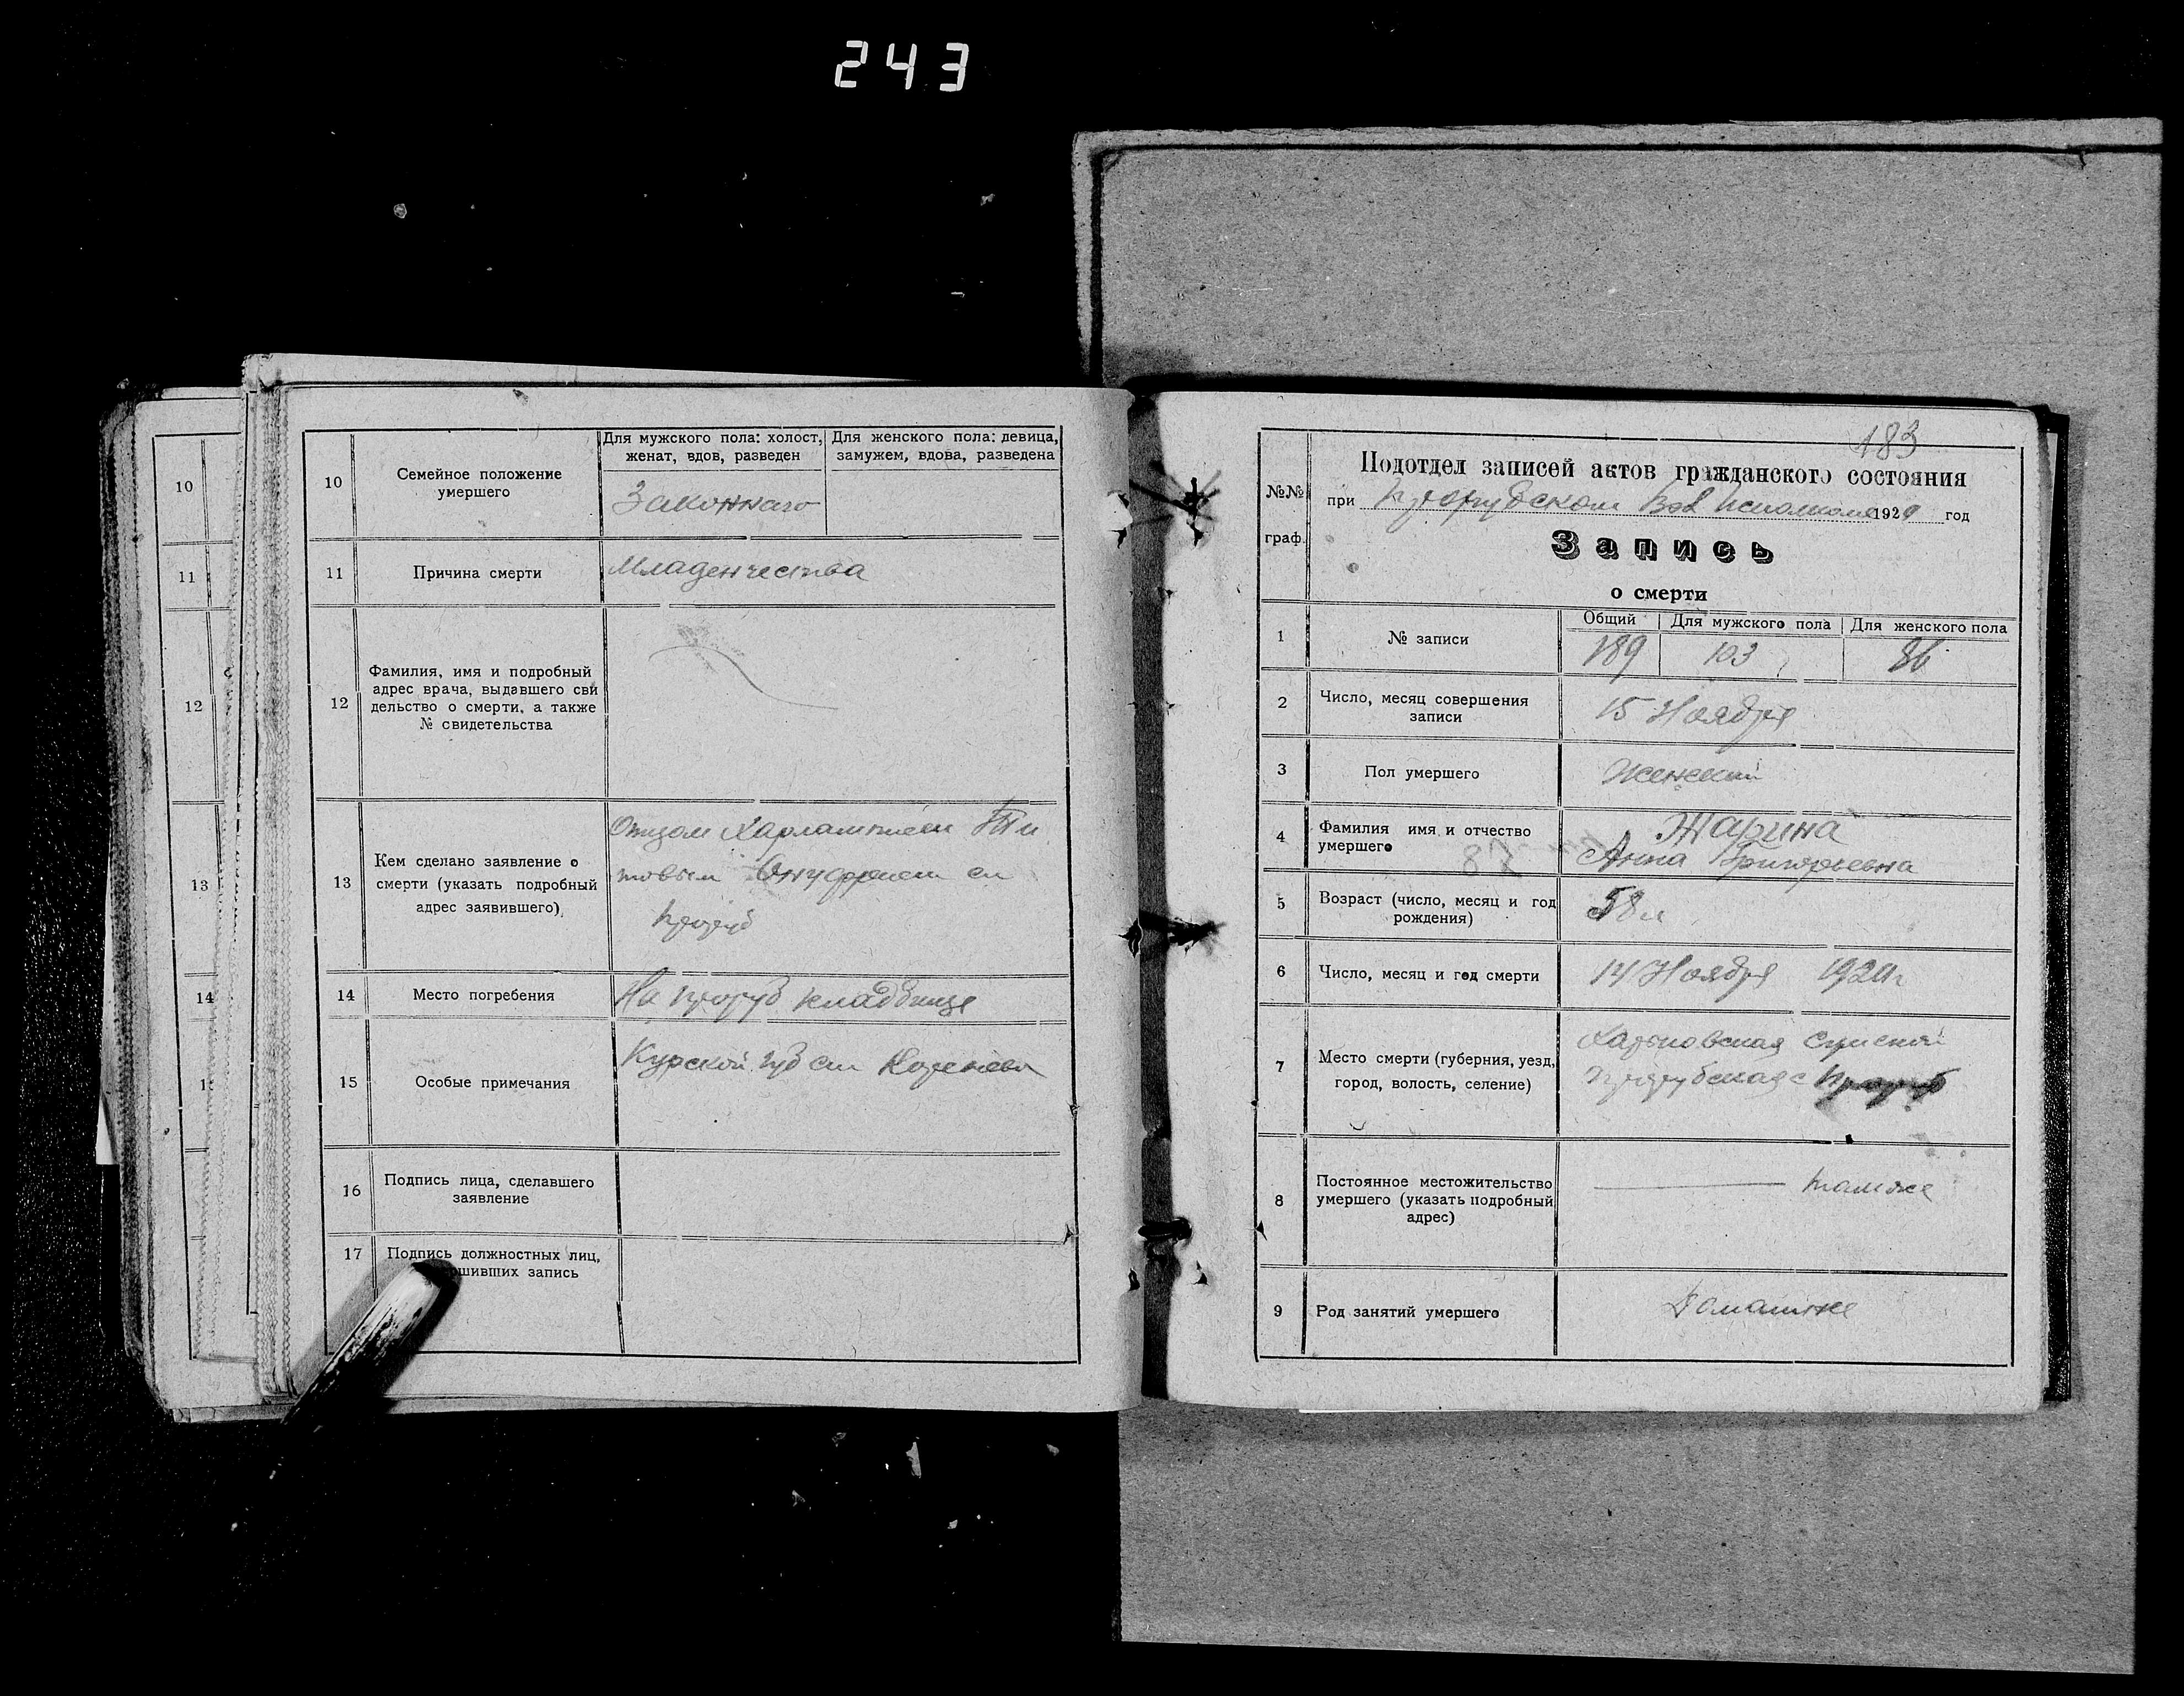 243
10
11
12
13
14
10
Семейное положение
умершего
Для мужского пола: холост,
женат, вдов, разведен
Для женского пола: девица,
замужем, вдова, разведена
Законнаго
11
Причина смерти
Младенчества
12
Фамилия, имя и подробный
адрес врача, выдавшего сви
дельство о смерти, а также
№ свидетельства
13
Кем сделано заявление о
смерти (указать подробный
адрес заявившего)
Отцом Харлампием
14
Место погребения
На кладбище
15
Особые примечания
Курской губ
16
Подпись лица, сделавшего
заявление
17
Подпись должностных лиц,
ршивших запись
183
№№
граф.
Подотдел записей актов гражданского состояния
при 192 год
Запись
о смерти
1
№ записи
Общий
Для мужского пола
Для женского пола
189
103
86
2
Число, месяц совершения
записи
15 Ноября
3
Пол умершего
Женский
4
Фамилия имя и отчество
умершего
Жарина
Анна Григорьевна
5
Возраст (число, месяц и год
рождения)
58 л
6
Число, месяц и год смерти
14 Ноября
7
Место смерти (губерния, уезд,
город, волость, селение)
Харьковская Сумской
8
Постоянное местожительство
умершего (указать подробный
адрес)
тамже
9
Род занятий умершего